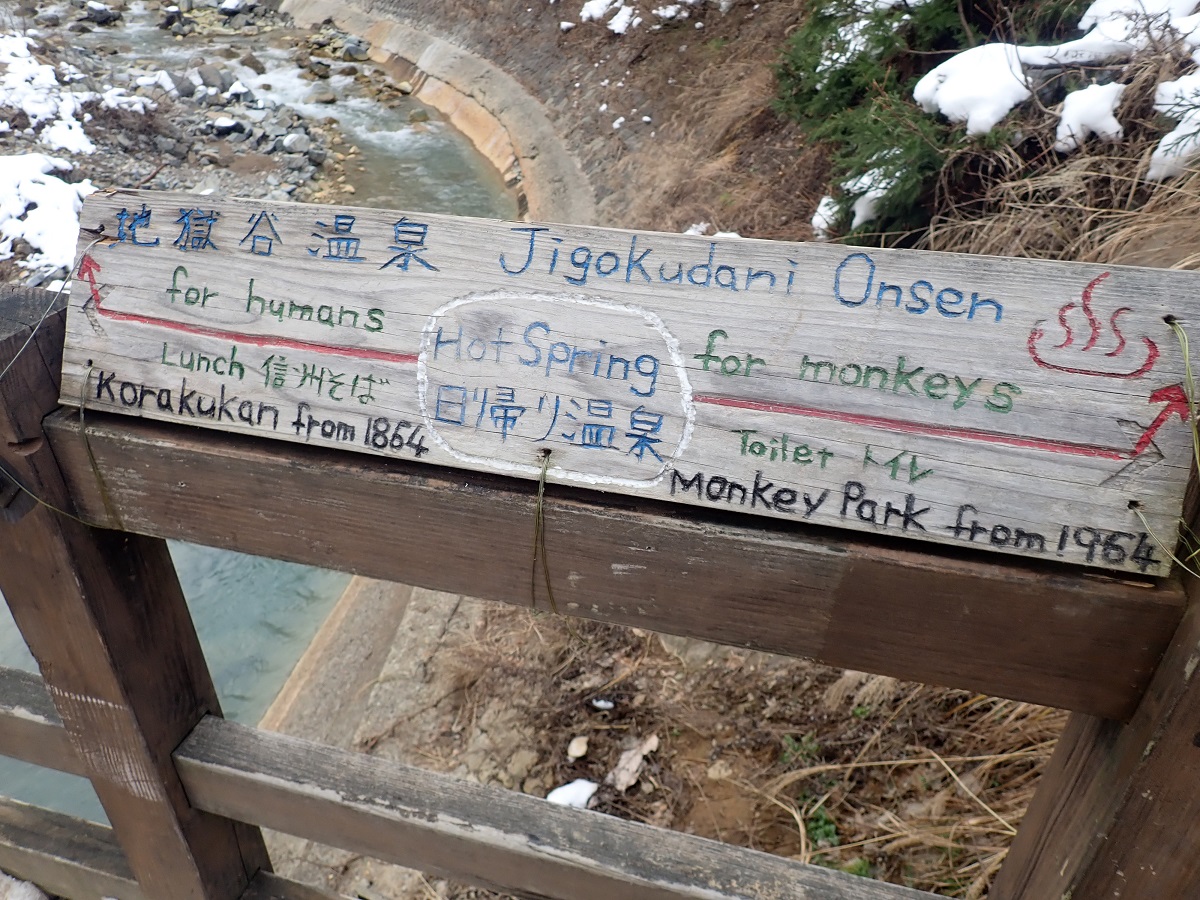 地獄谷温泉 Jigokudani Onsen
for humans
Hot Spring
for monkeys
Lunch 信州そば
日帰り温泉
Toilet トイレ
Korakukan from 1864
Monkey Park from 1964